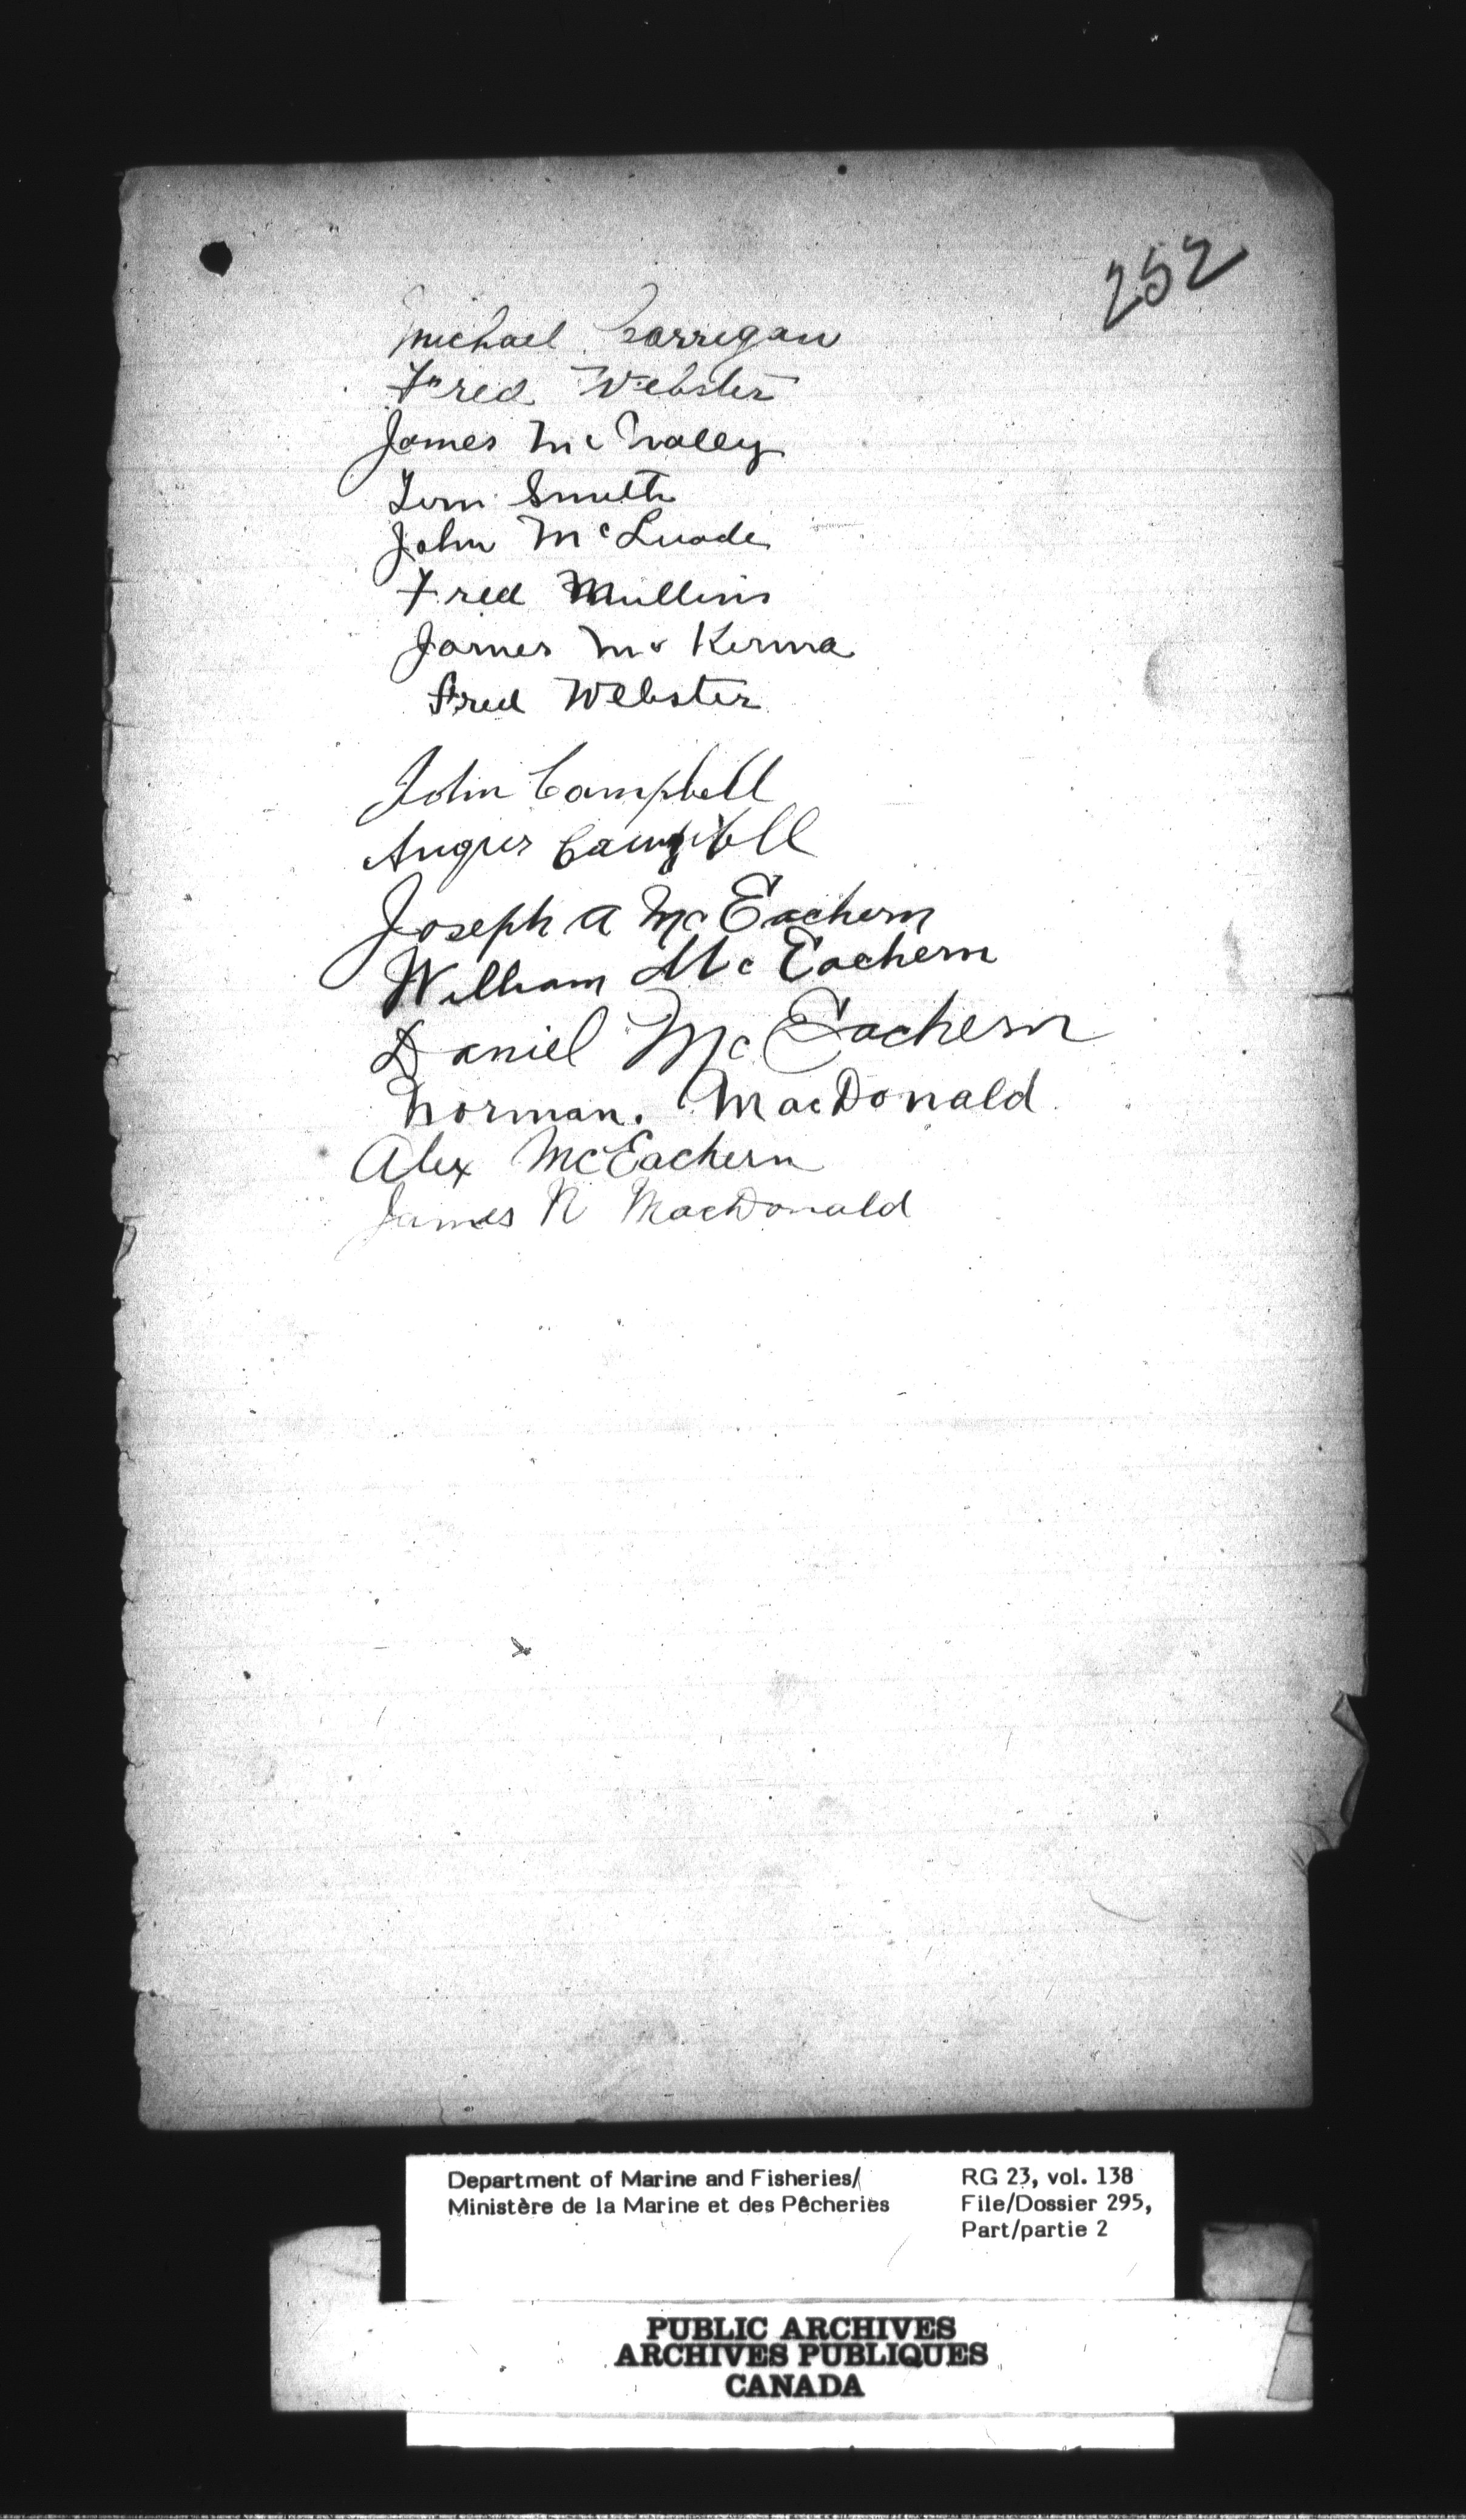 252
Michael Corrigan
Fred Webster
James Mc Nally
Tom Smith
John McQuade
Fred Mullins
James Mc Kenna
Fred Webster
John Campbell
Angus Campbell
Joseph A McEachern
William McEachern
Daniel McEachern
Norman. MacDonald
Alex McEachern
James N MacDonald
Department of Marine and Fisheries/ RG 23, vol. 138
Ministère de la Marine et des Pêcheries File/Dossier 295,
Part/partie 2
PUBLIC ARCHIVES
ARCHIVES PUBLIQUES
CANADA